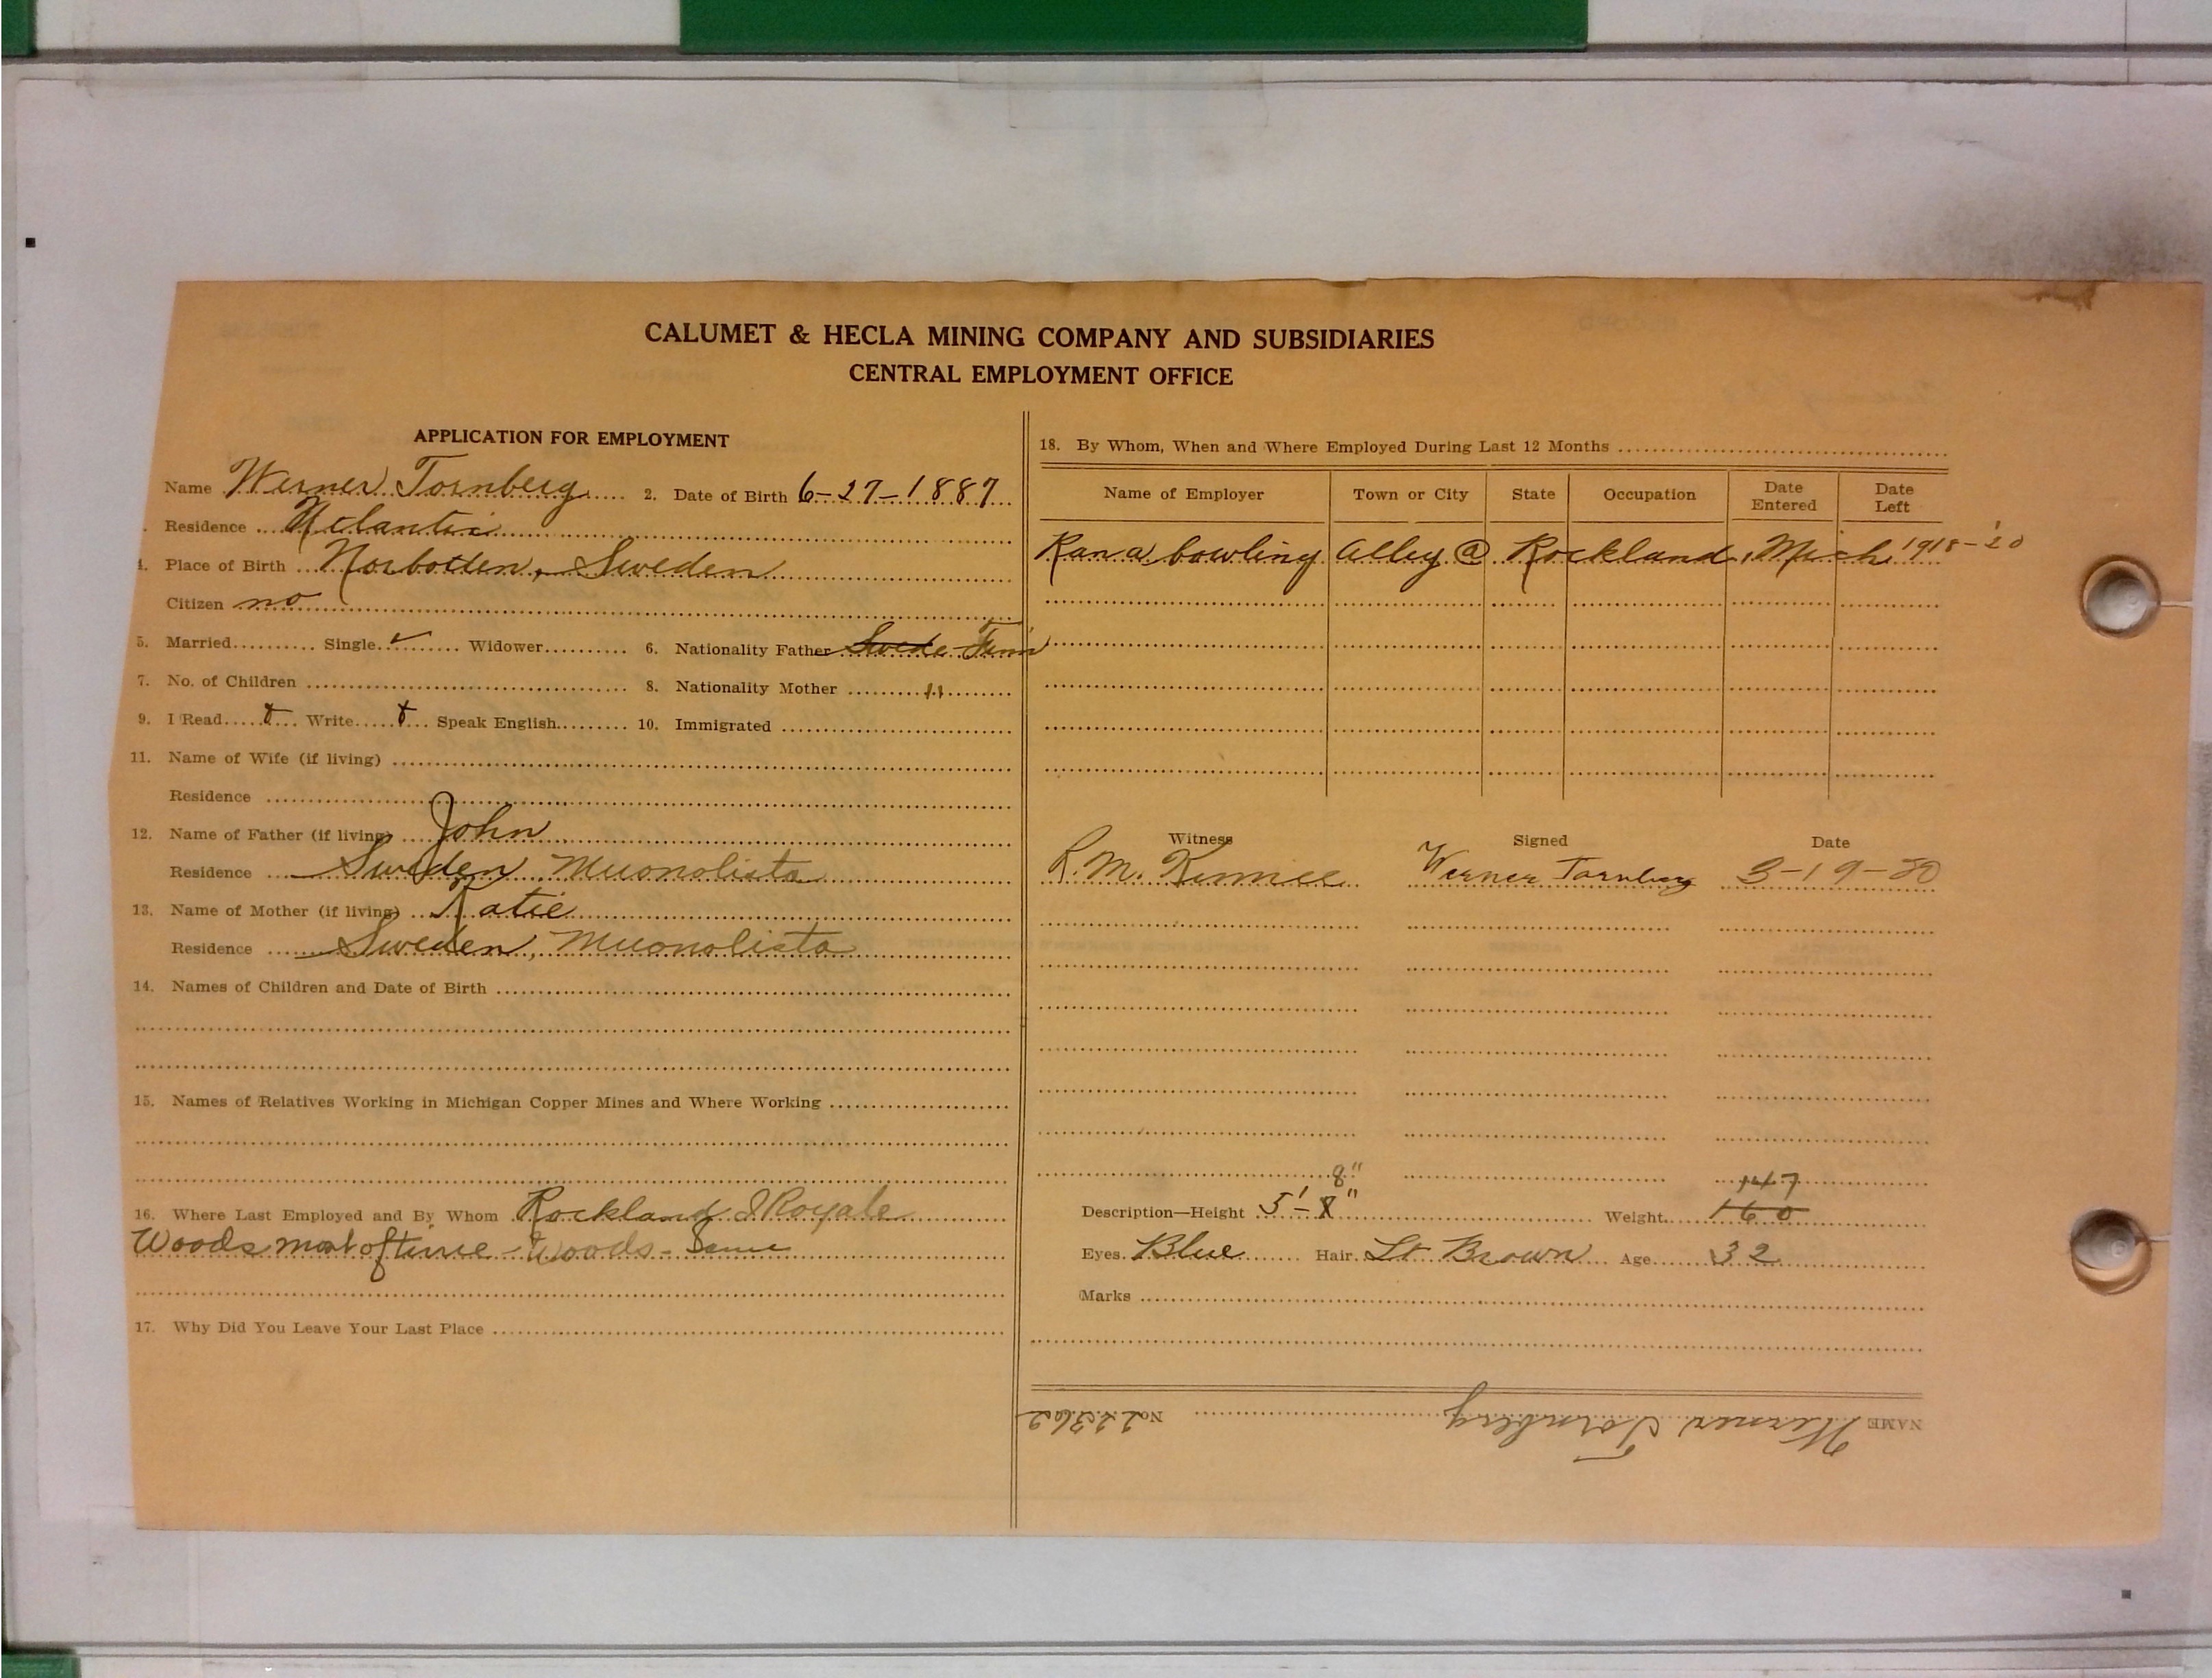 CALUMET & HECLA MINING COMPANY AND SUBSIDIARIES
CENTRAL EMPLOYMENT OFFICE
APPLICATION FOR EMPLOYMENT
Name Werner Tornberg 2. Date of Birth 6-27-1887
Residence Atlantic
4. Place of Birth Norbotten, Sweden
Citizen no
5. Married Single ✓ Widower 6. Nationality Father Swede Finn
7. No. of Children 8. Nationality Mother "
9. I Read Write Speak English 10. Immigrated
11. Name of Wife (if living)
Residence
12. Name of Father (if living) John
Residence Sweden, Muonolista
13. Name of Mother (if living) Katie
Residence Sweden, Muonolista
14. Names of Children and Date of Birth
15. Names of Relatives Working in Michigan Copper Mines and Where Working
16. Where Last Employed and By Whom Rockland I Royale
Woods most of time - Woods - Same
17. Why Did You Leave Your Last Place
18. By Whom, When and Where Employed During Last 12 Months
Name of Employer Town or City State Occupation Date Entered Date Left
Ran a bowling Alley @ Rockland, Mich. 1918-'20
Witness Signed Date
Werner Tornberg 3-19-20
8"
Description—Height 5'-8" Weight 160
Eyes Blue Hair Lt Brown Age 32
Marks
NAME Werner Tornberg No. 22362